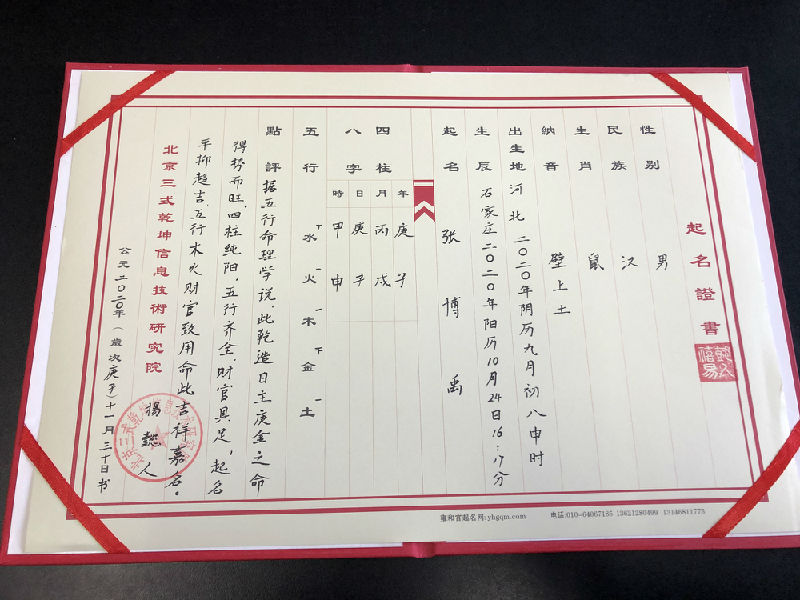 起名證書
性别 男
民族 汉
生肖 鼠
纳音 壁上土
出生地 河北 二〇二〇年阴历九月初八申时
生辰 石家庄 二〇二〇年阳历10月24日16:17分
起名 张博禹
四柱 年 月 日 時
八字 庚子 丙戌 庚子 甲申
五行 水 火 木 金 土
點評 据五行命理学说,此乾造日主庚金之命
得势而旺,四柱纯阳,五行齐全,财官具足,起名
平抑趋吉,五行木火财官致用命此吉祥嘉名。
北京三式乾坤信息技術研究院
杨懿人
公元二〇二〇年(歲次庚子)十一月三十日书
雍和宫起名网:yhgqm.com 电话:010-64067185 13621280499 13146811773